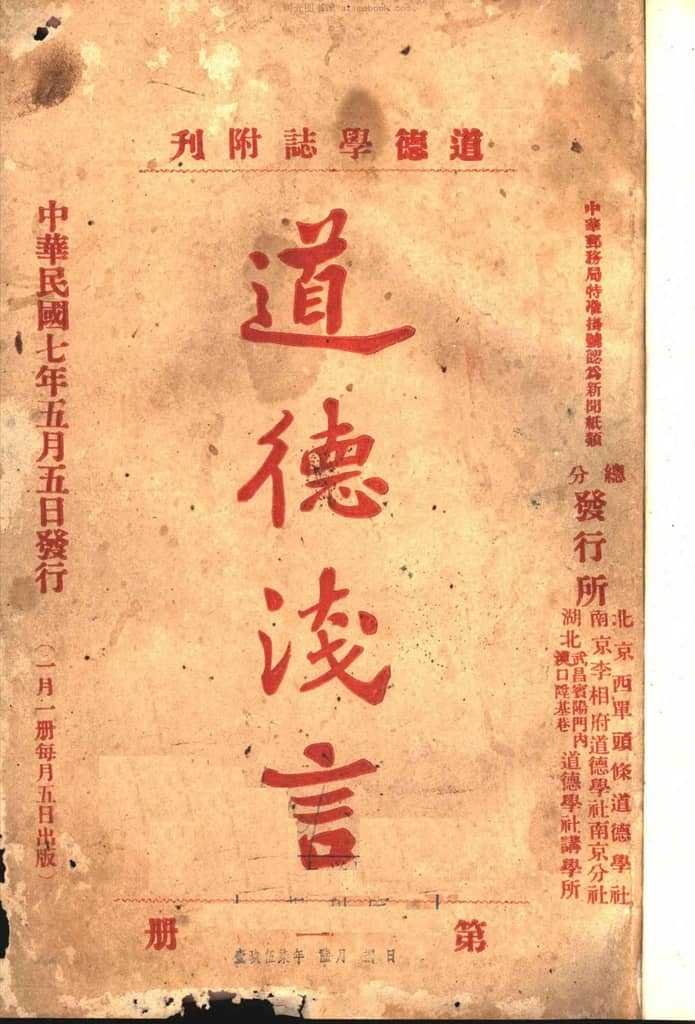 道德學誌附刊
中華郵務局特准掛號認為新聞紙類
總分發行所
北京西單頭條道德學社
南京李相府道德學社南京分社
湖北武昌賓陽門內漢口隆基巷道德學社講學所
道德淺言
中華民國七年五月五日發行
(一月一册每月五日出版)
第一册